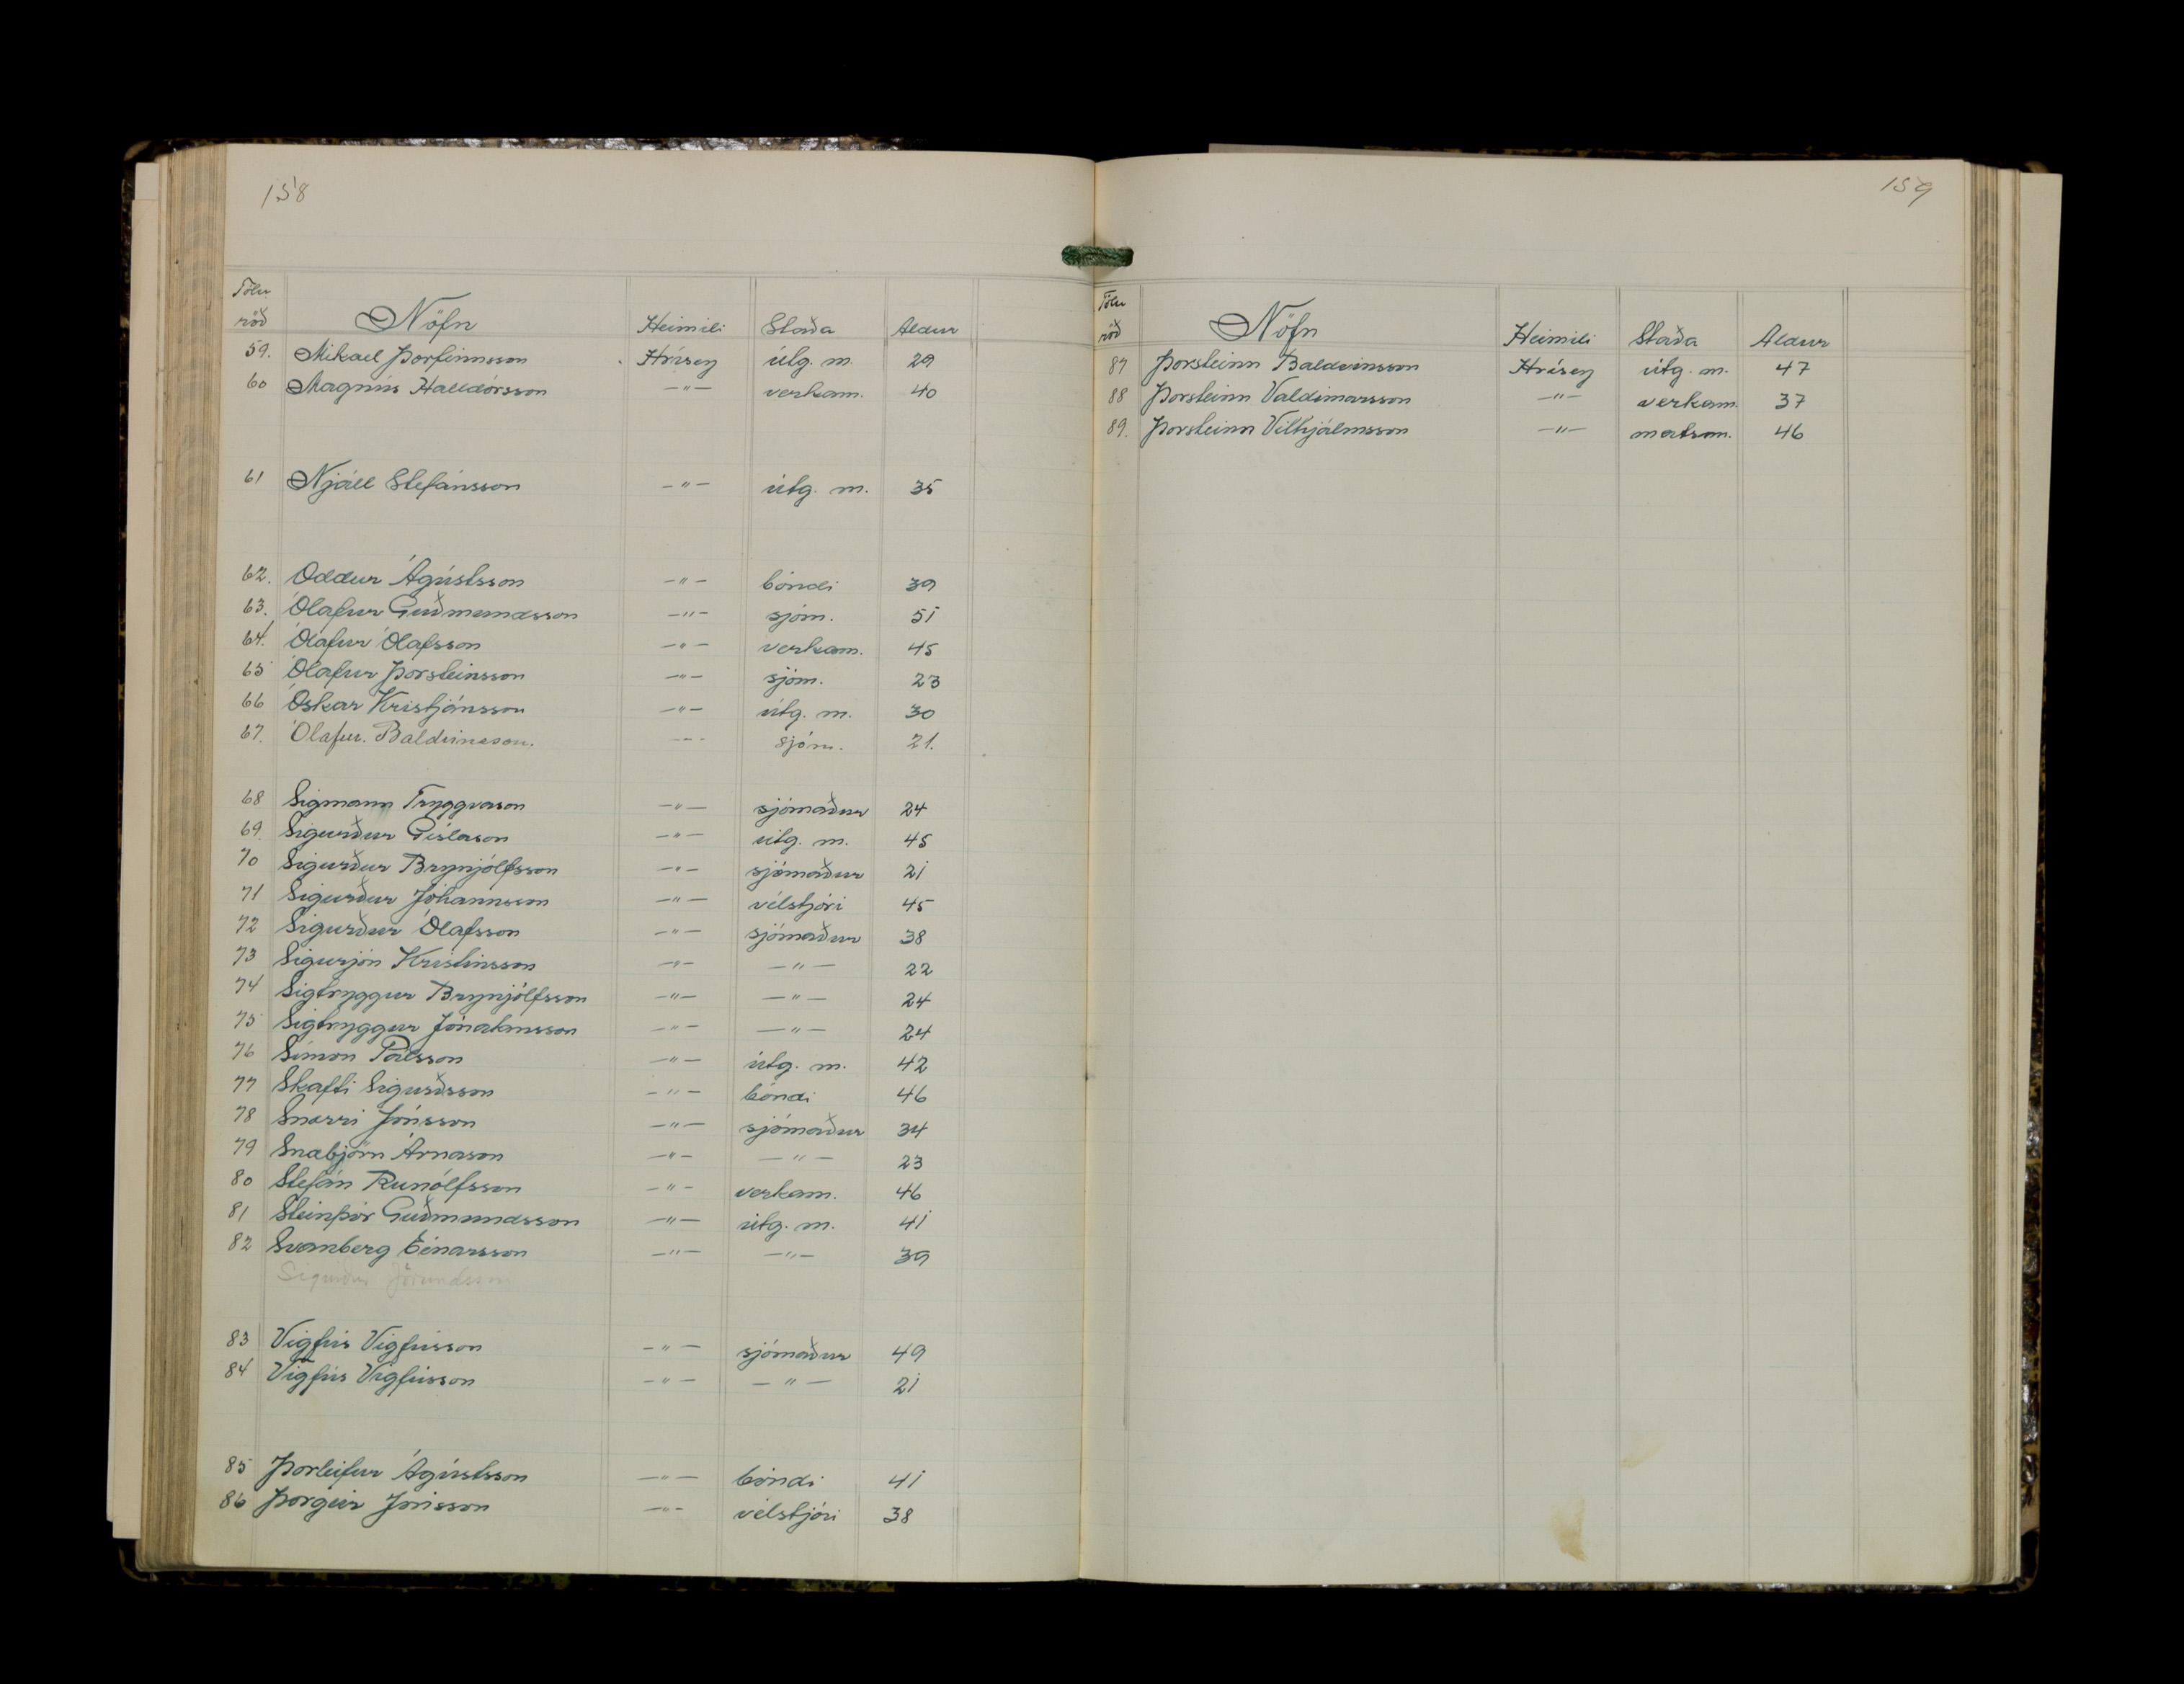 158
Tölu
röð Nöfn Heimili Staða Aldur
59. Mikael Þorfinnsson Hrísey útg. m. 29
60 Magnús Halldórsson —"— verkam. 40
61 Njáll Stefánsson —"— útg. m. 35
62. Oddur Ágústsson —"— bóndi 39
63. Ólafur Guðmundsson —"— sjóm. 51
64. Ólafur Ólafsson —"— verkam. 45
65 Ólafur Þorsteinsson —"— sjóm. 23
66 Óskar Kristjánsson —"— útg. m. 30
67. Ólafur. Baldvinsson. —"— sjóm. 21.
68 Sigmann Tryggvason —"— sjómaður 24
69. Sigurður Gíslason —"— útg. m. 45
70 Sigurður Brynjólfsson —"— sjómaður 21
71 Sigurður Jóhannsson —"— vélstjóri 45
72 Sigurður Ólafsson —"— sjómaður 38
73 Sigurjón Kristinsson —"— —"— 22
74 Sigtryggur Brynjólfsson —"— —"— 24
75 Sigtryggur Jónatansson —"— —"— 24
76 Símon Pálsson —"— útg. m. 42
77 Skafti Sigurðsson —"— bóndi 46
78 Snorri Jónsson —"— sjómaður 34
79 Snæbjörn Árnason —"— —"— 23
80 Stefán Runólfsson —"— verkam. 46
81 Steinþór Guðmundsson —"— útg. m. 41
82 Svanberg Einarsson —"— —"— 39
Sigurður Jörundsson
83 Vigfús Vigfússon —"— sjómaður 49
84 Vigfús Vigfússon —"— —"— 21
85 Þorleifur Ágústsson —"— bóndi 41
86 Þorgeir Jónsson —"— vélstjóri 38
159
Tölu
röð Nöfn Heimili Staða Aldur
87 Þorsteinn Baldvinsson Hrísey útg. m. 47
88 Þorsteinn Valdimarsson —"— verkam. 37
89. Þorsteinn Vilhjálmsson —"— matsm. 46